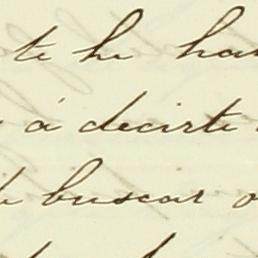 te he ha
á decirte
buscar